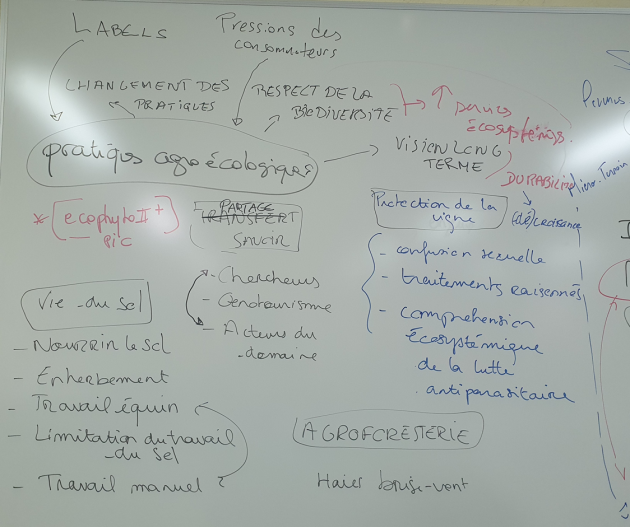 LABELS
Pressions des
consommateurs
CHANGEMENT DES
PRATIQUES
RESPECT DE LA
BIODIVERSITÉ
↑ services
écosystémiques.
pratiques agroécologiques
VISION LONG
TERME
DURABILITÉ
* [ecophyto II +]
PIC
PARTAGE
TRANSFERT
SAVOIR
Protection de la
vigne
(dé)croissance
- confusion sexuelle
- traitements raisonnés
- compréhension
écosystémique
de la lutte
antiparasitaire
- Chercheurs
- Oenotourisme
- Acteurs du
domaine
Vie du sol
- Nourrir le sol
- Enherbement
- Travail équin
- Limitation du travail
du sol
- Travail manuel
AGROFORESTERIE
Haies brise-vent